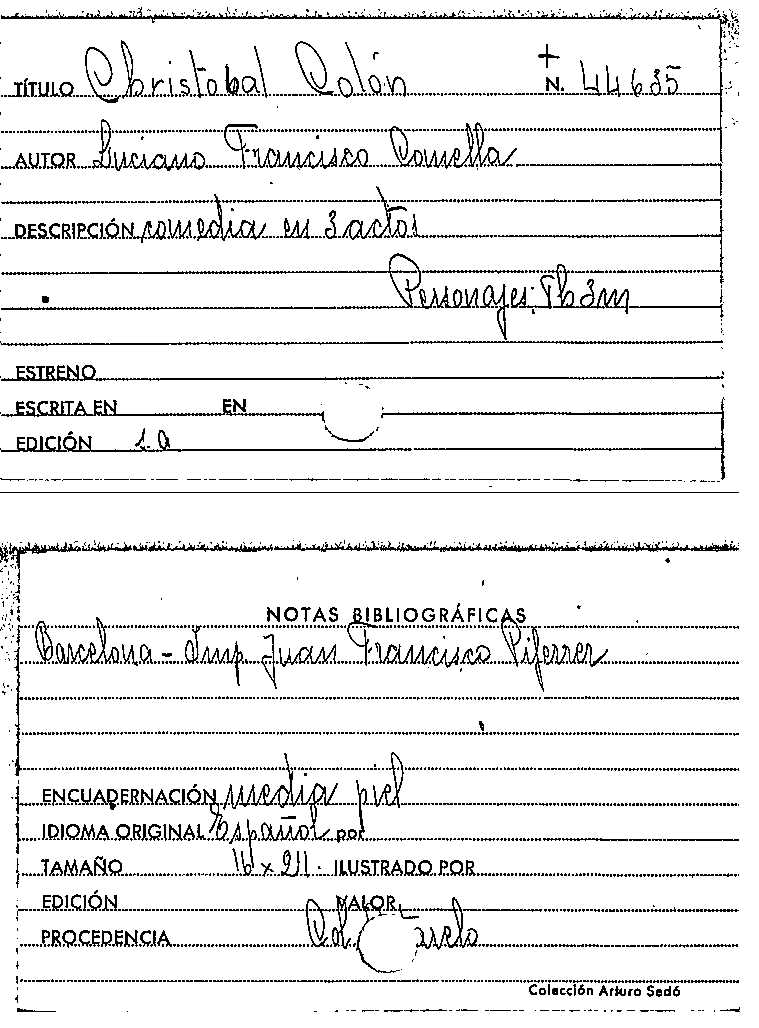 TÍTULO Christobal Colón + N. 44635
AUTOR Luciano Francisco Comella
DESCRIPCIÓN comedia en 3 actos
Personajes: 3m
ESTRENO
ESCRITA EN EN
EDICIÓN 1.a
NOTAS BIBLIOGRÁFICAS
Barcelona - Imp. Juan Francisco Piferrer
ENCUADERNACIÓN media piel
IDIOMA ORIGINAL Español por
TAMAÑO ILUSTRADO POR
EDICIÓN VALOR
PROCEDENCIA Col.
Colección Arturo Sedó